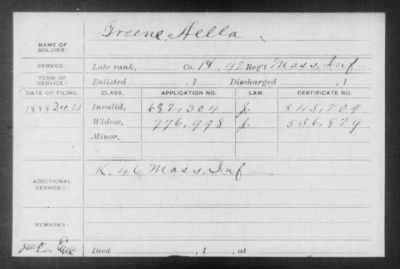 NAME OF SOLDIER: Greene, Aella
SERVICE: Late rank, Co. 42 Reg't Mass. Inf
TERM OF SERVICE: Enlisted , 1 Discharged , 1
DATE OF FILING. CLASS. APPLICATION NO. LAW. CERTIFICATE NO.
1888 Invalid, 687,304 J. 845,709
Widow, 776,998 J. 556,879
Minor,
ADDITIONAL SERVICES: K. 46 Mass. Inf
REMARKS:
Died , 1 , at